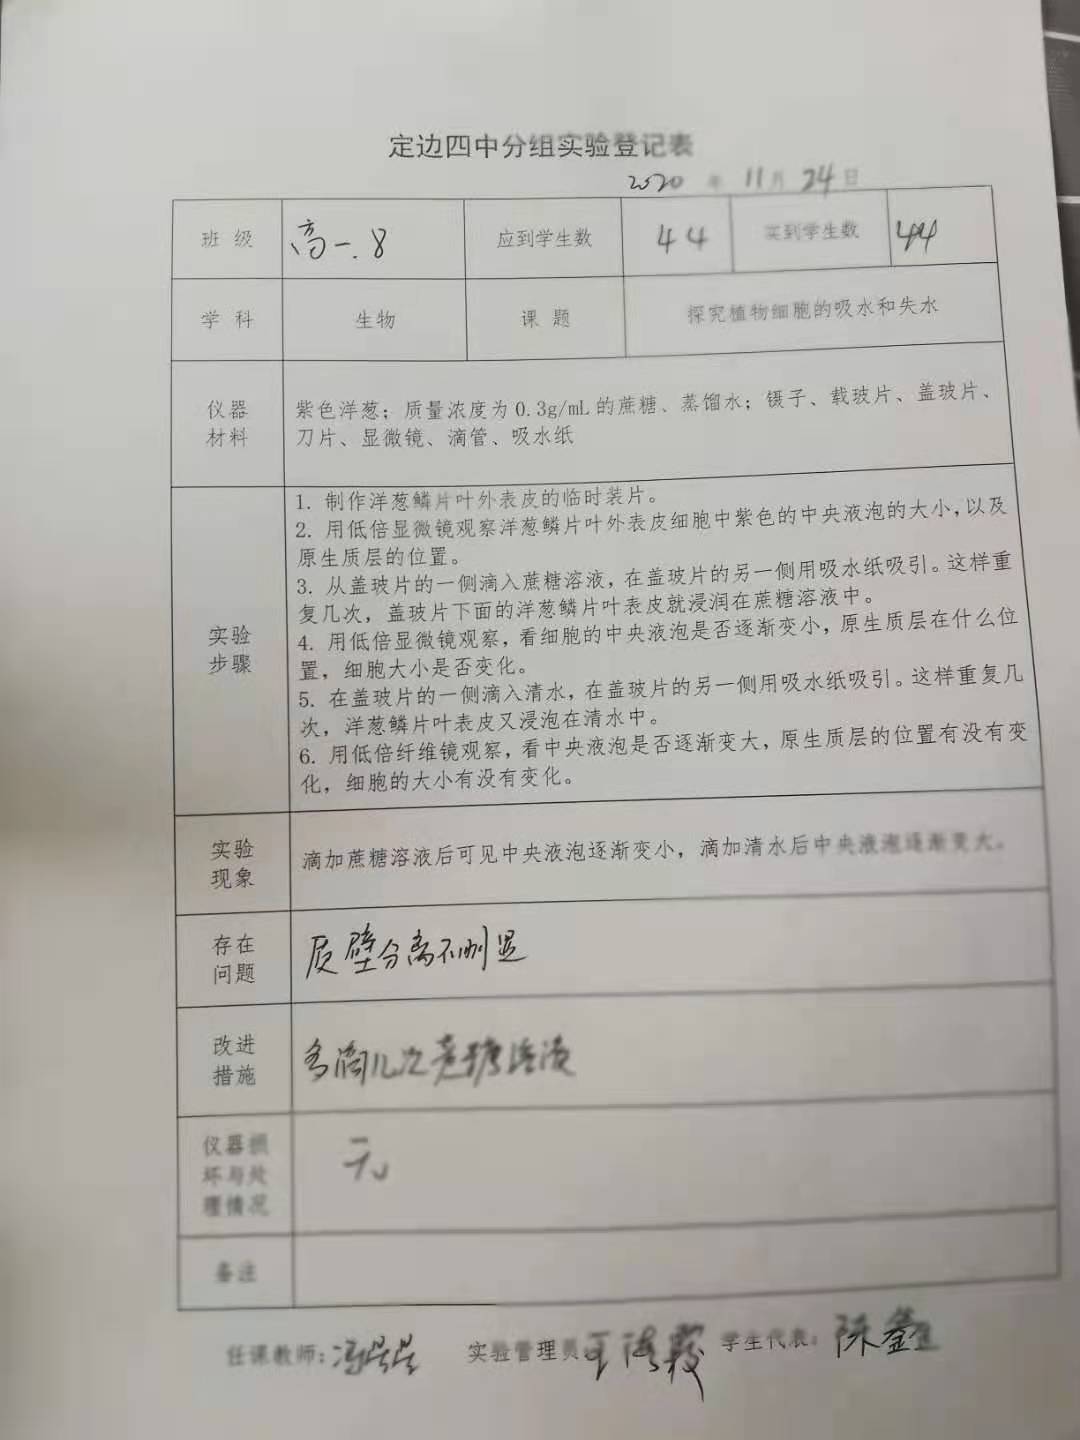 定边四中分组实验登记表
2020 年 11 月 24 日
班 级 高一.8 应到学生数 44 实到学生数 44
学 科 生物 课 题 探究植物细胞的吸水和失水
仪器
材料
紫色洋葱；质量浓度为 0.3g/mL 的蔗糖、蒸馏水；镊子、载玻片、盖玻片、
刀片、显微镜、滴管、吸水纸
实验
步骤
1. 制作洋葱鳞片叶外表皮的临时装片。
2. 用低倍显微镜观察洋葱鳞片叶外表皮细胞中紫色的中央液泡的大小，以及
原生质层的位置。
3. 从盖玻片的一侧滴入蔗糖溶液，在盖玻片的另一侧用吸水纸吸引。这样重
复几次，盖玻片下面的洋葱鳞片叶表皮就浸润在蔗糖溶液中。
4. 用低倍显微镜观察，看细胞的中央液泡是否逐渐变小，原生质层在什么位
置，细胞大小是否变化。
5. 在盖玻片的一侧滴入清水，在盖玻片的另一侧用吸水纸吸引。这样重复几
次，洋葱鳞片叶表皮又浸泡在清水中。
6. 用低倍纤维镜观察，看中央液泡是否逐渐变大，原生质层的位置有没有变
化，细胞的大小有没有变化。
实验
现象
滴加蔗糖溶液后可见中央液泡逐渐变小，滴加清水后中央液泡逐渐变大。
存在
问题
质壁分离不明显
改进
措施
多滴几次蔗糖溶液
仪器损
坏与处
理情况
无
备注
任课教师： 实验管理员 学生代表： 陈鑫